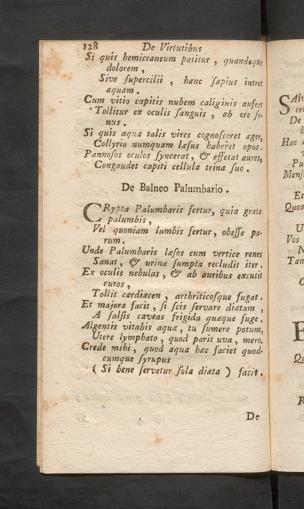 128 De Virtutibus
Si quis hemicraneum patitur, quandoque
dolorem,
Sive supercilii, hanc sæpius intret
aquam.
Cum vitio capitis nubem caliginis aufert
Tollitur ex oculis sanguis, ab ore sonus.
Si quis aquæ talis vires cognosceret æger,
Collyrio numquam læsus haberet opus.
Pannosos oculos syncerat, & effetat aures,
Congaudet capiti cellula trina suo.
De Balneo Palumbario.
CRypta Palumbaris fertur, quia grata
palumbis,
Vel quoniam lumbis fertur, obesse parum.
Unde Palumbaris læsos cum vertice renes
Sanat, & urinæ sumpta recludit iter.
Ex oculis nebulas, & ab auribus excutit
Tollit cardiacem, arthriticosque fugat.
Et majora facit, si scis servare diætam,
A salsis caveas frigida quæque fuge.
Algentis vitabis aquæ, tu sumere potum,
Utere lymphato, quod parit uva, mero.
Crede mihi, quod aqua hæc faciet quodcumque
syrupus
( Si bene servetur sola diæta ) facit.
De